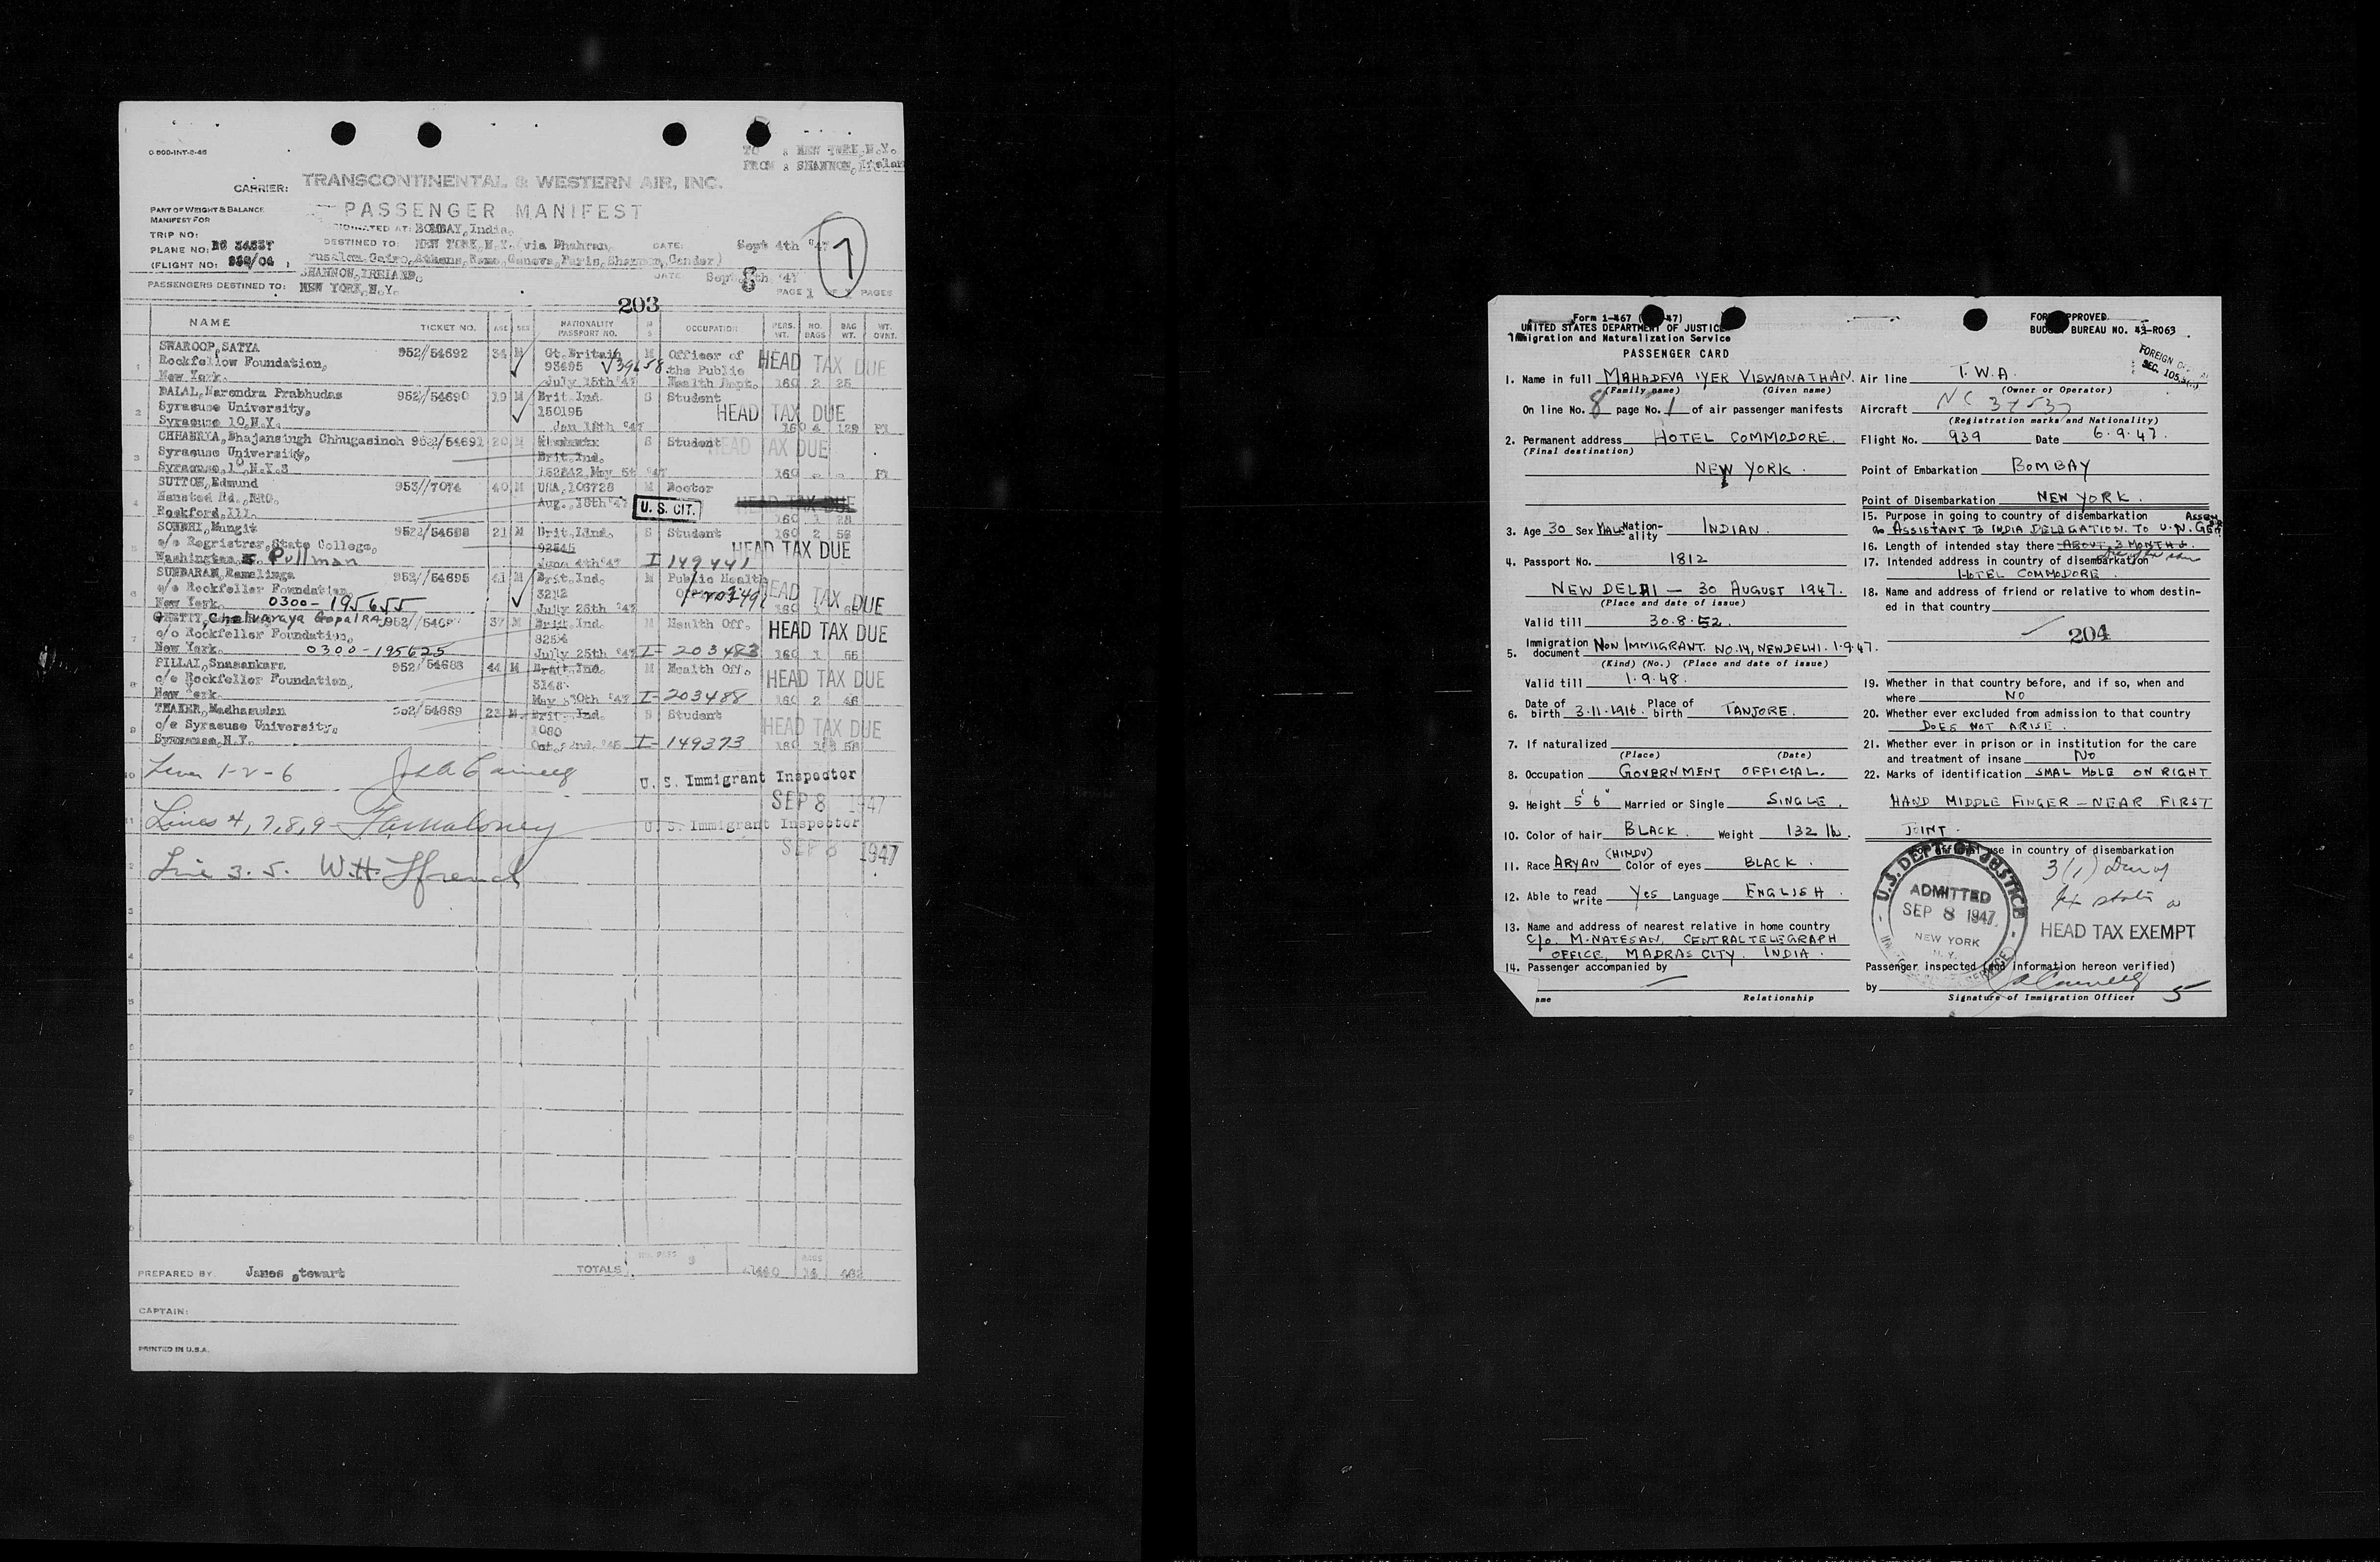 0 900-INT-8-46
TO : NEW YORK, N.Y.
FROM : SHANNON, Irelan
CARRIER: TRANSCONTINENTAL & WESTERN AIR, INC.
PART OF WEIGHT & BALANCE
MANIFEST FOR
PASSENGER MANIFEST
TRIP NO:
ORIGINATED AT: BOMBAY, India.
PLANE NO:
DESTINED TO: NEW YORK, N.Y. (via Dhahran,
DATE: Sept 4th '47
7
(FLIGHT NO: )
rusalem, Cairo, Athens, Rome, Geneva, Paris, Shannon, Gander)
SHANNON, IRELAND.
DATE Sept 8th '47
PASSENGERS DESTINED TO: NEW YORK, N.Y.
PAGE 1 OF 1 PAGES
203
NAME TICKET NO. AGE SEX NATIONALITY PASSPORT NO. M S OCCUPATION PERS. WT. NO. BAGS BAG WT. WT. OVNT.
SWAROOP, SATYA 952//54692 34 M Gt. Britain M Officer of HEAD TAX DUE
Rockfellow Foundation, 93495 the Public
New York. July 15th '47 Health Dept. 160 2 25
DALAL, Narendra Prabhudas 952//54690 19 M Brit. Ind. S Student
Syracuse University, 150195 HEAD TAX DUE
Syracuse 10, N.Y. Jan 18th '47 160 4 129
CHHABRYA, Bhajansingh Chhugasinch 952//54691 20 M S Student HEAD TAX DUE
Syracuse University, Brit. Ind.
Syracuse, 10, N.Y. 152842, May 5t '47 160
SUTTON, Edmund 953//7074 40 M USA, 106728 M Doctor
Hansted Rd., RRO. Aug. 18th '47 U. S. CIT. HEAD TAX DUE
Rockford, Ill. 160 1 28
SOHBRI, Mungit 21 M Brit. Ind. S Student 160 2 56
c/o Registrar, State College, HEAD TAX DUE
Washington, Pullman June 4th '47 I 149441
SUNDARAN, Ramalinga 952//54695 41 M Brit. Ind. M Public Health
c/o Rockfeller Foundation, 3212 HEAD TAX DUE
New York. 0300-195655 July 25th '47 160
CHETTY, Chelvaraya GopalRA 37 M Brit. Ind. M Health Off. HEAD TAX DUE
c/o Rockfeller Foundation, 3254
New York. 0300-195625 July 25th '47 I-203483 160 1 55
PILLAI, Snasankara 952//54688 44 M Brit. Ind. M Health Off. HEAD TAX DUE
c/o Rockfeller Foundation,
New York. May 30th '47 I-203488 160 2 46
THAKER, Madhasudan 23 M Brit. Ind. S Student HEAD TAX DUE
c/o Syracuse University, 1080
Syracuse, N.Y. I-149373 160
1-2-6
U. S. Immigrant Inspector
SEP 8 1947
Lines 4, 7, 8, 9 - U. S. Immigrant Inspector
SEP 8 1947
Line 3. 5.
PREPARED BY: James stewart
TOTALS NO. PASS 9 BAGS
CAPTAIN:
PRINTED IN U.S.A.
UNITED STATES DEPARTMENT OF JUSTICE
Immigration and Naturalization Service
PASSENGER CARD
1. Name in full MAHADEVA IYER VISWANATHAN.
(Family name) (Given name)
On line No. 8 page No. 1 of air passenger manifests
2. Permanent address HOTEL COMMODORE.
(Final destination)
NEW YORK.
3. Age 30 Sex MALE Nationality INDIAN.
4. Passport No. 1812
NEW DELHI — 30 AUGUST 1947.
(Place and date of issue)
Valid till 30.8.52.
5. Immigration document NON IMMIGRANT. NO.14, NEWDELHI. 1.9.47.
(Kind) (No.) (Place and date of issue)
Valid till 1.9.48.
6. Date of birth 3.11.1916. Place of birth TANJORE.
7. If naturalized
(Place) (Date)
8. Occupation GOVERNMENT OFFICIAL.
9. Height 5' 6" Married or Single SINGLE.
10. Color of hair BLACK. Weight 132 lb.
11. Race ARYAN (HINDU) Color of eyes BLACK.
12. Able to read write Yes Language ENGLISH.
13. Name and address of nearest relative in home country
C/o. M. NATESAN, CENTRAL TELEGRAPH
OFFICE, MADRAS CITY. INDIA.
14. Passenger accompanied by
Name Relationship
FORM APPROVED
BUDGET BUREAU NO. 43-R063
FOREIGN
SEC. 105.3
Air line T.W.A.
(Owner or Operator)
Aircraft NC 34537
(Registration marks and Nationality)
Flight No. 939 Date 6.9.47.
Point of Embarkation BOMBAY
Point of Disembarkation NEW YORK.
15. Purpose in going to country of disembarkation
ASSISTANT TO INDIA DELEGATION. TO U.N. GEN. ASSEM
16. Length of intended stay there ABOUT 3 MONTHS.
17. Intended address in country of disembarkation
HOTEL COMMODORE.
18. Name and address of friend or relative to whom destined in that country
204
19. Whether in that country before, and if so, when and
where NO
20. Whether ever excluded from admission to that country
DOES NOT ARISE.
21. Whether ever in prison or in institution for the care
and treatment of insane NO
22. Marks of identification SMAL MOLE ON RIGHT
HAND MIDDLE FINGER — NEAR FIRST
JOINT.
For official use in country of disembarkation
U.S. DEPT. OF JUSTICE
ADMITTED
SEP 8 1947
NEW YORK
N. Y.
3(1)
HEAD TAX EXEMPT
Passenger inspected (and information hereon verified)
by
Signature of Immigration Officer
5